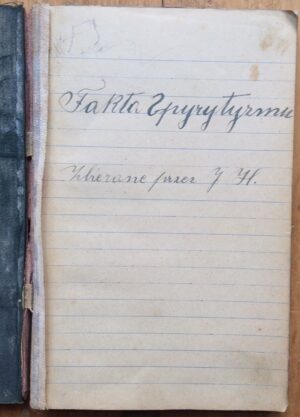 Fakta Spyrytyzmu
Zbierane przez J. H.